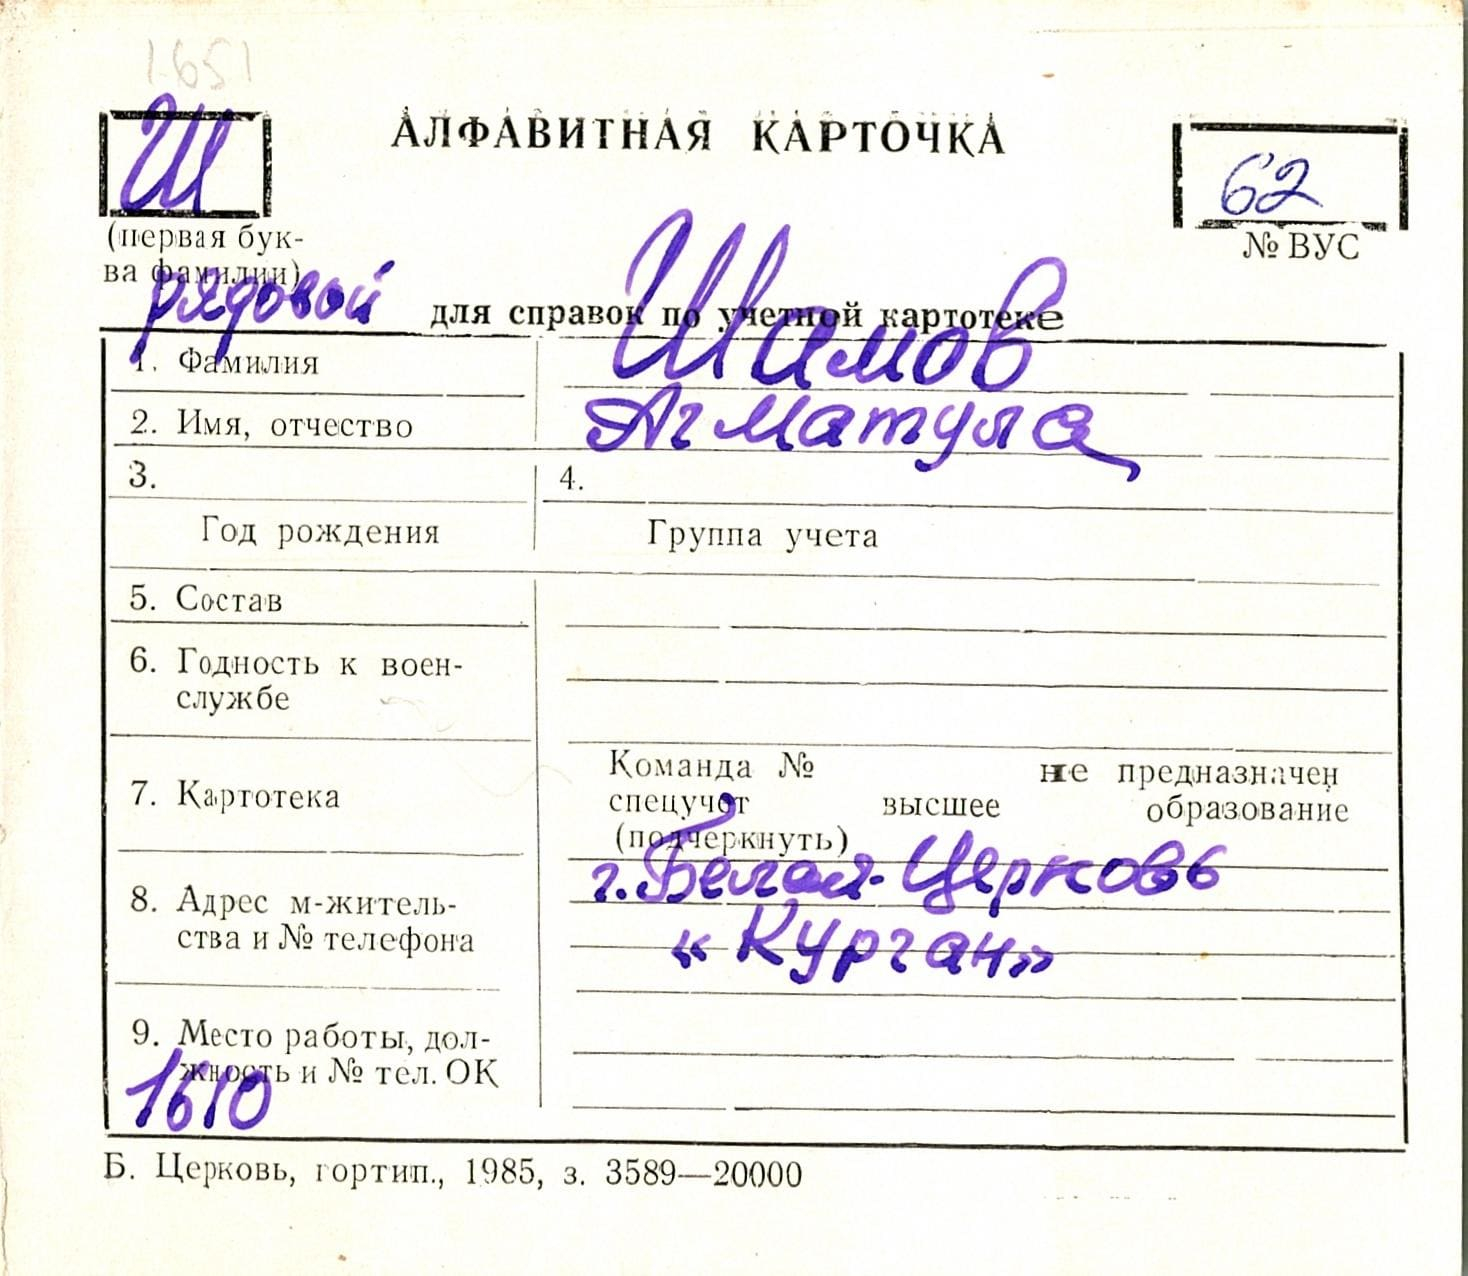 1651
Ш
АЛФАВИТНАЯ КАРТОЧКА
62
(первая бук-
ва фамилии)
№ ВУС
рядовой
для справок по учетной картотеке
1. Фамилия Шамов
2. Имя, отчество Агматула
3. 4.
Год рождения Группа учета
5. Состав
6. Годность к воен-
службе
7. Картотека
Команда № не предназначен
спецучёт высшее образование
(подчеркнуть)
8. Адрес м-житель-
ства и № телефона
г. Белая-Церковь
«Курган»
9. Место работы, дол-
жность и № тел. ОК
1610
Б. Церковь, гортип., 1985, з. 3589—20000